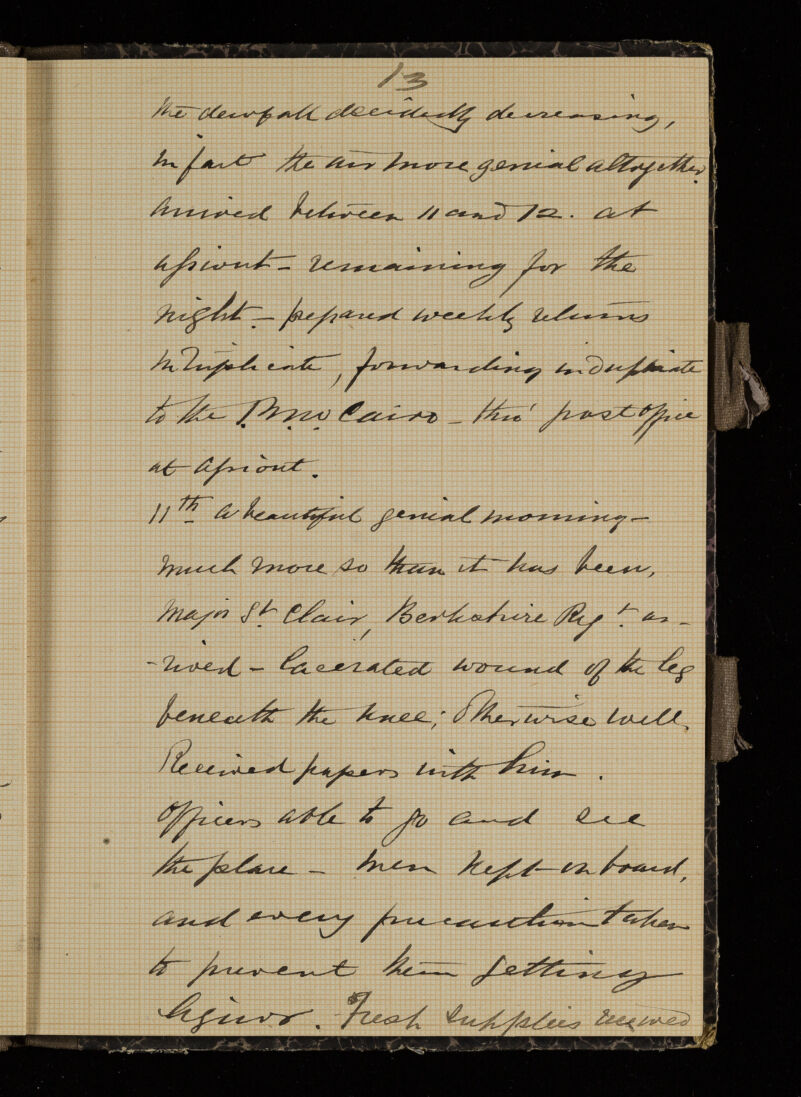 13
the dewfall decidedly decreasing,
in fact the air more genial altogether.
arrived between 11 and 12. at
Assiout - remaining for the
night. - prepared weekly returns
in Triplicate, forwarding in duplicate
to the P.M.O. Cairo - thro' post office
at Assiout.
11th A beautiful genial morning -
much more so than it has been,
Major St. Clair, Berkshire Regt. ar-
-rived - lacerated wound of the leg
beneath the knee; otherwise well.
Received papers with him.
Officers able to go and see
the place - men kept on board,
and every precaution taken
to prevent them getting
liquor. Fresh supplies received